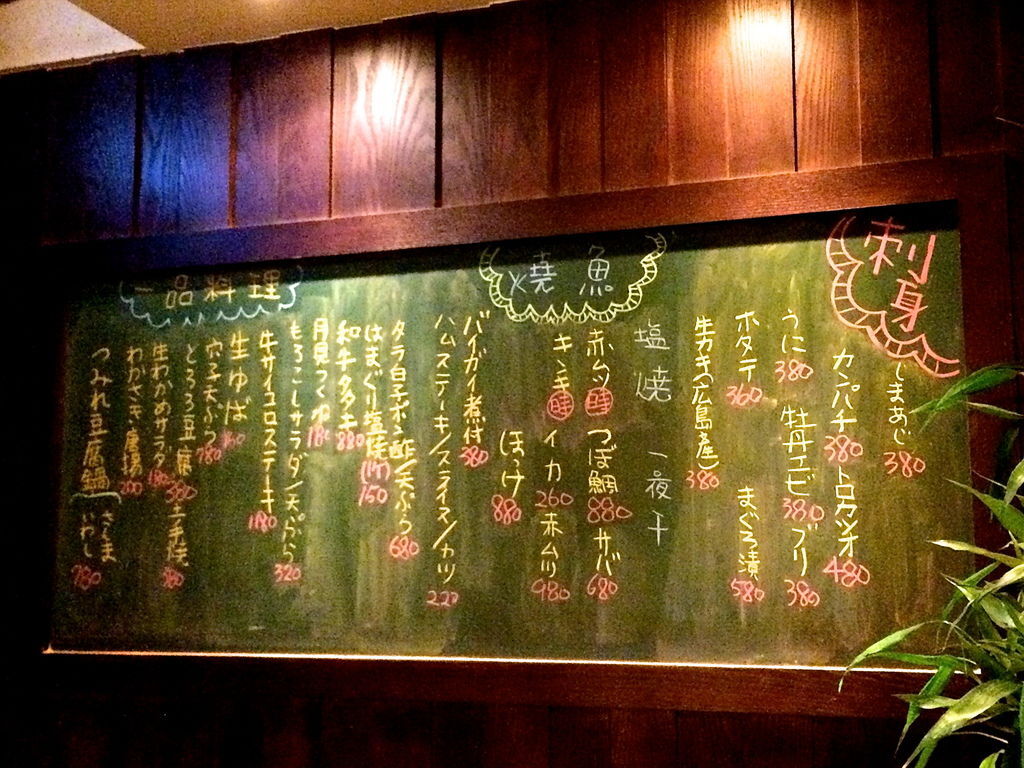 刺身
しまあじ 380
カンパチ 380 トロカツオ 480
うに 380 牡丹エビ 380 ブリ 380
ホタテ 360 まぐろ漬 580
生カキ(広島産) 380
焼魚
塩焼 一夜干
赤ムツ 時 つぼ鯛 880 サバ 680
キンキ 時 イカ 260 赤ムツ 980
ほっけ 880
バイガイ煮付 380
ハムステーキ/スライス/カツ 220
タラ白子ポン酢/天ぷら 680
はまぐり塩焼(1ケ) 160
和牛タタキ 880
月見つくね 180
もろこしサラダ/天ぷら 320
牛サイコロステーキ 1180
生ゆば
穴子天ぷら 780
とろろ豆腐 380 土手焼
生わかめサラダ 380
わかさぎ唐揚
つみれ豆腐鍋(さんま いわし 780
一品料理